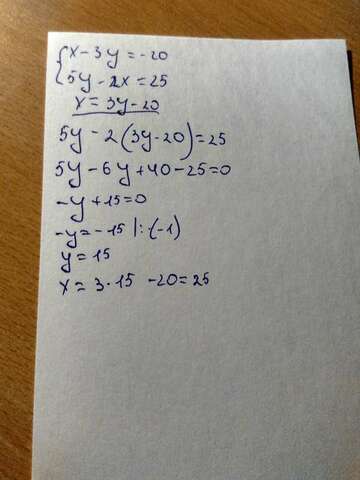 {x-3y=-20
5y-2x=25
x=3y-20
5y-2(3y-20)=25
5y-6y+40-25=0
-y+15=0
-y=-15 |:(-1)
y=15
x=3·15 -20=25